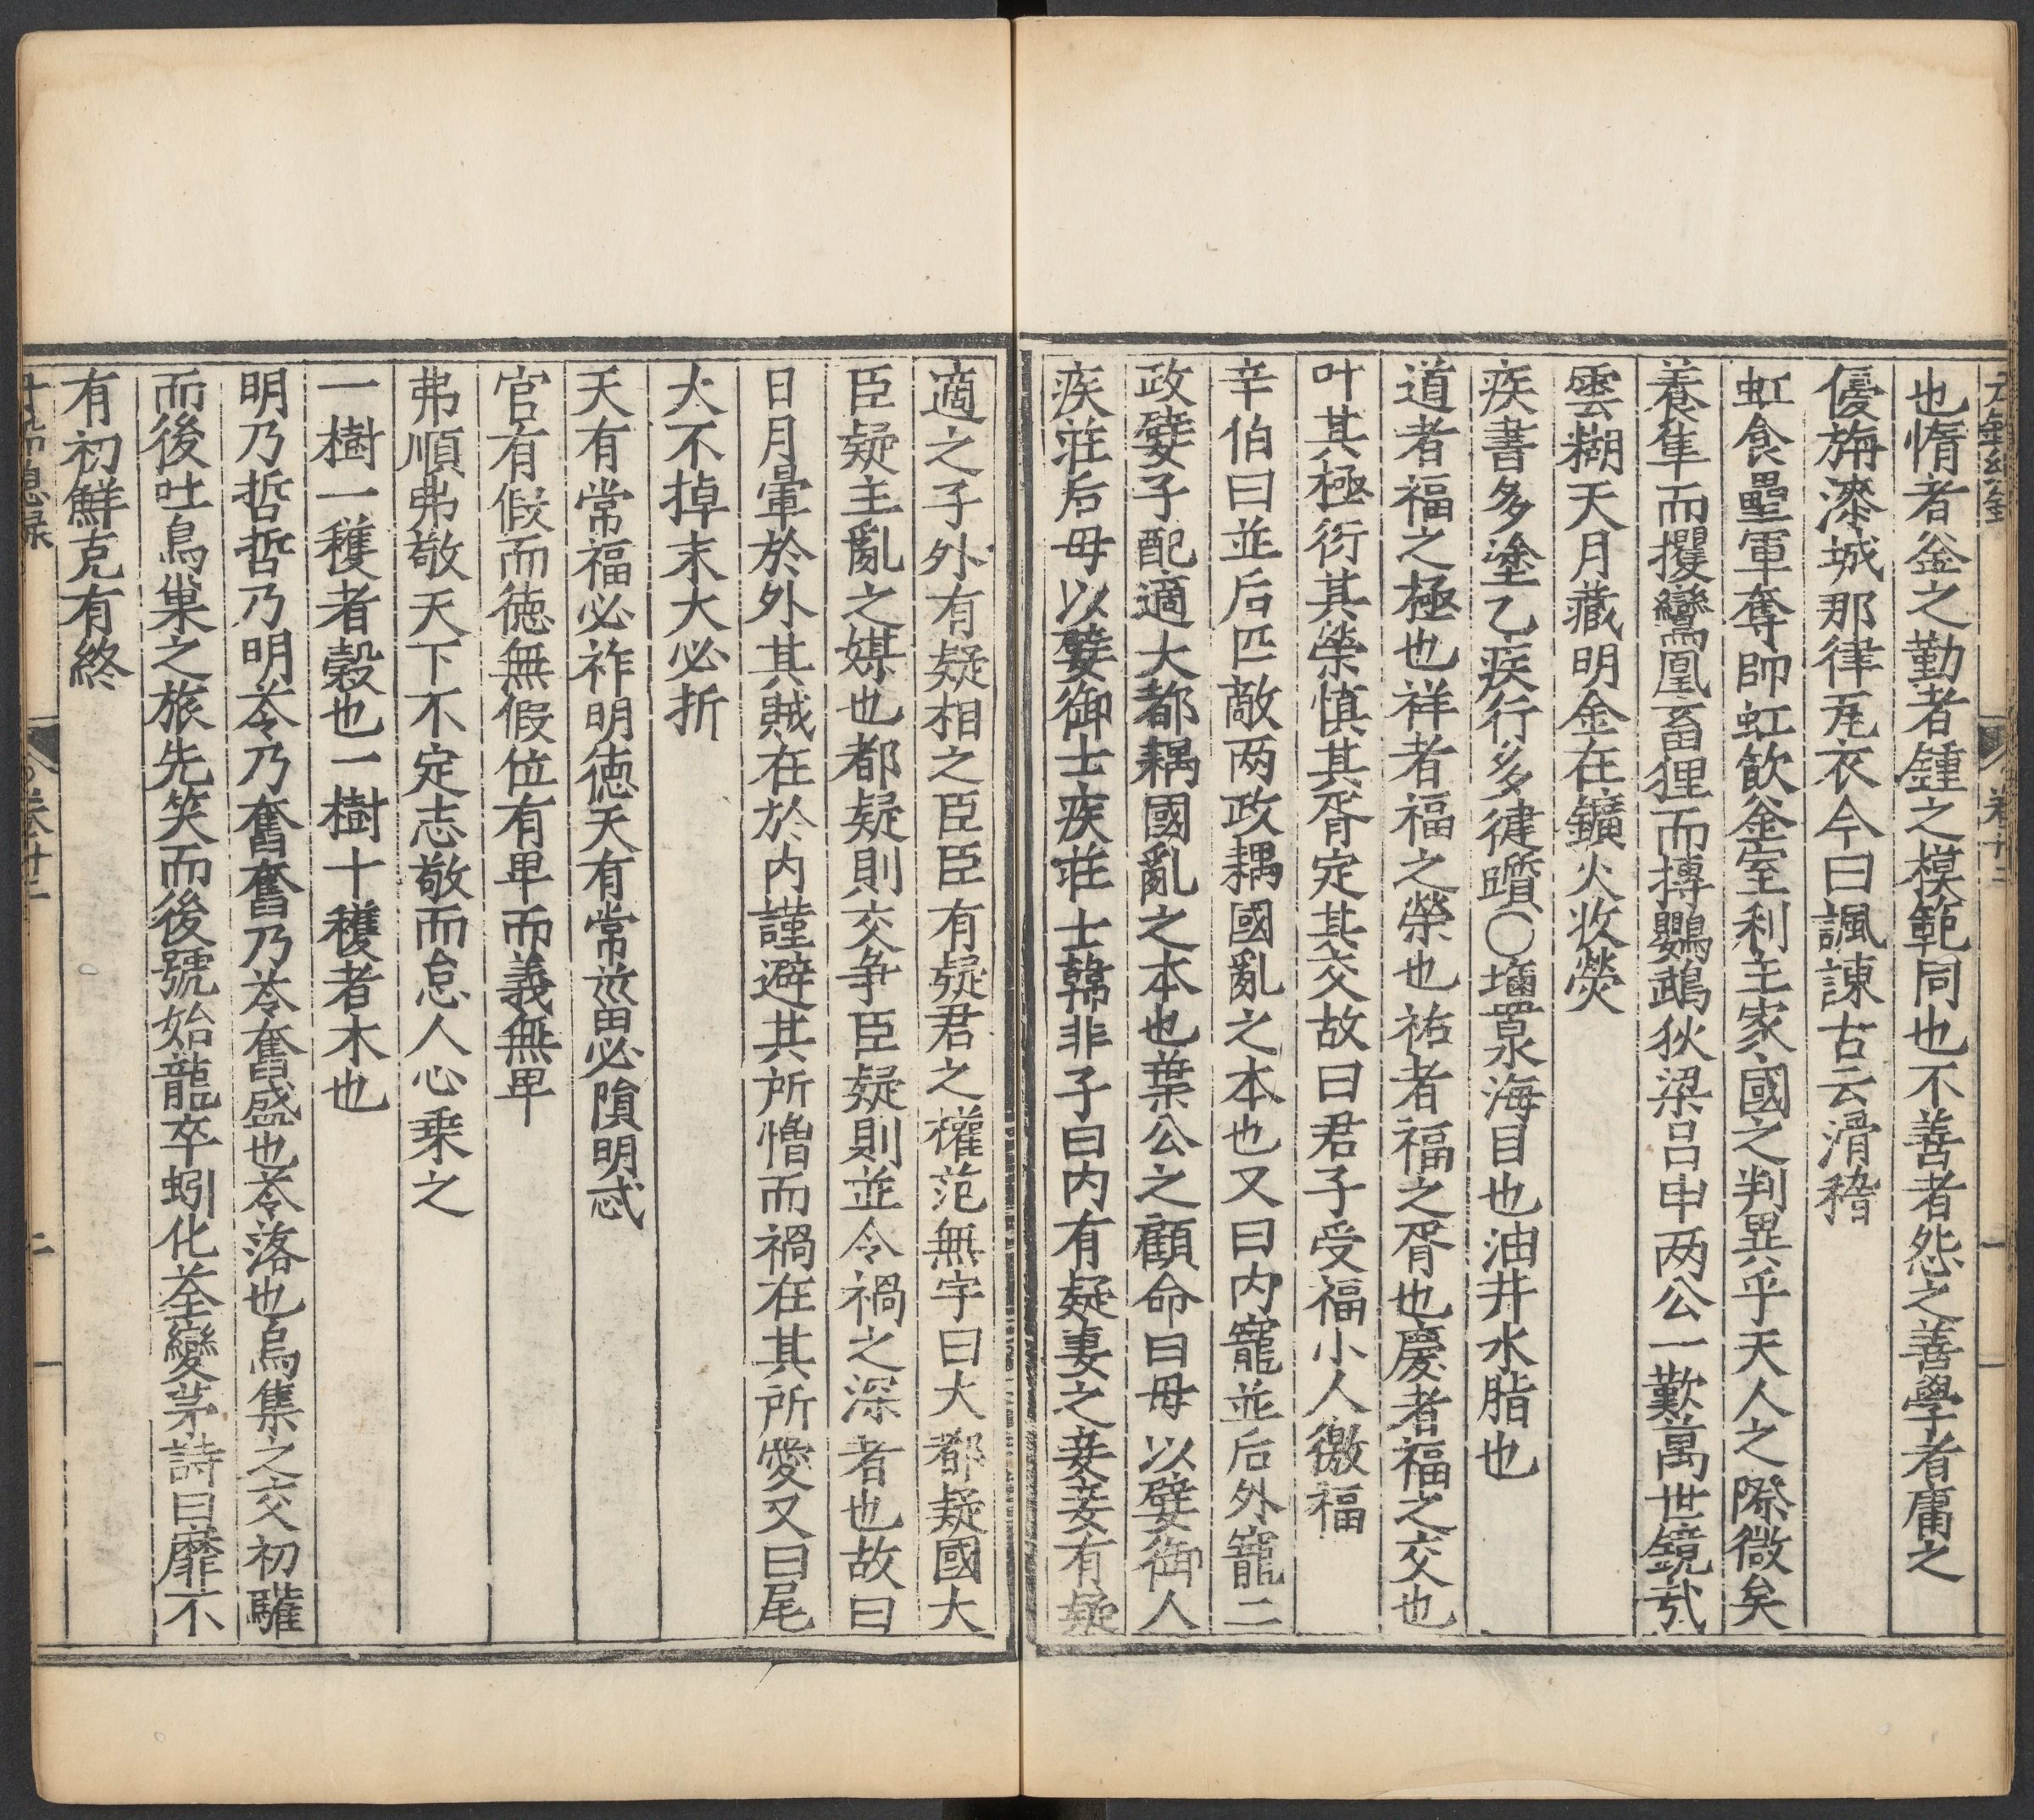 也惰者釜之勤者鍾之模範同也不善者怨之善學者庸之
優旃漆城那律瓦衣今曰諷諌古云滑稽
虹食壘軍奪帥虹飲釜室利主家國之判異乎天人之際微矣
養隼而攫鸞凰畜狸而摶鸚鵡狄梁呂申两公一歎萬世鏡㦲
雲糊天月藏明金在鑛火收熒
疾書多塗乙疾行多徤躓〇壚睘泉海目也油井水脂也
道者福之極也祥者福之榮也祐者福之胥也慶者福之交也
叶其極衍其榮慎其胥定其交故曰君子受福小人徼福
辛伯曰並后匹敵两政耦國亂之本也又曰内寵並后外寵二
政嬖子配適大都耦國亂之本也葉公之顧命曰毋以嬖御人
疾莊后毋以嬖御士疾莊士韓非子曰内有疑妻之妾妾有疑
適之子外有疑相之臣臣有疑君之權范無宇曰大都疑國大
臣疑主亂之媒也都疑則交争臣疑則並令禍之深者也故曰
日月暈於外其賊在於内謹避其所憎而禍在其所愛又曰尾
大不掉末大必折
天有常福必祚明徳天有常葘必隕明忒
官有假而徳無假位有卑而義無卑
弗順弗敬天下不定志敬而怠人心乗之
一樹一穫者穀也一樹十穫者木也
明乃哲哲乃明苓乃奮奮乃苓奮盛也苓落也烏集之交初驩
而後吐鳥巢之旅先笑而後號始龍卒蚓化荃變茅詩曰靡不
有初鮮克有終